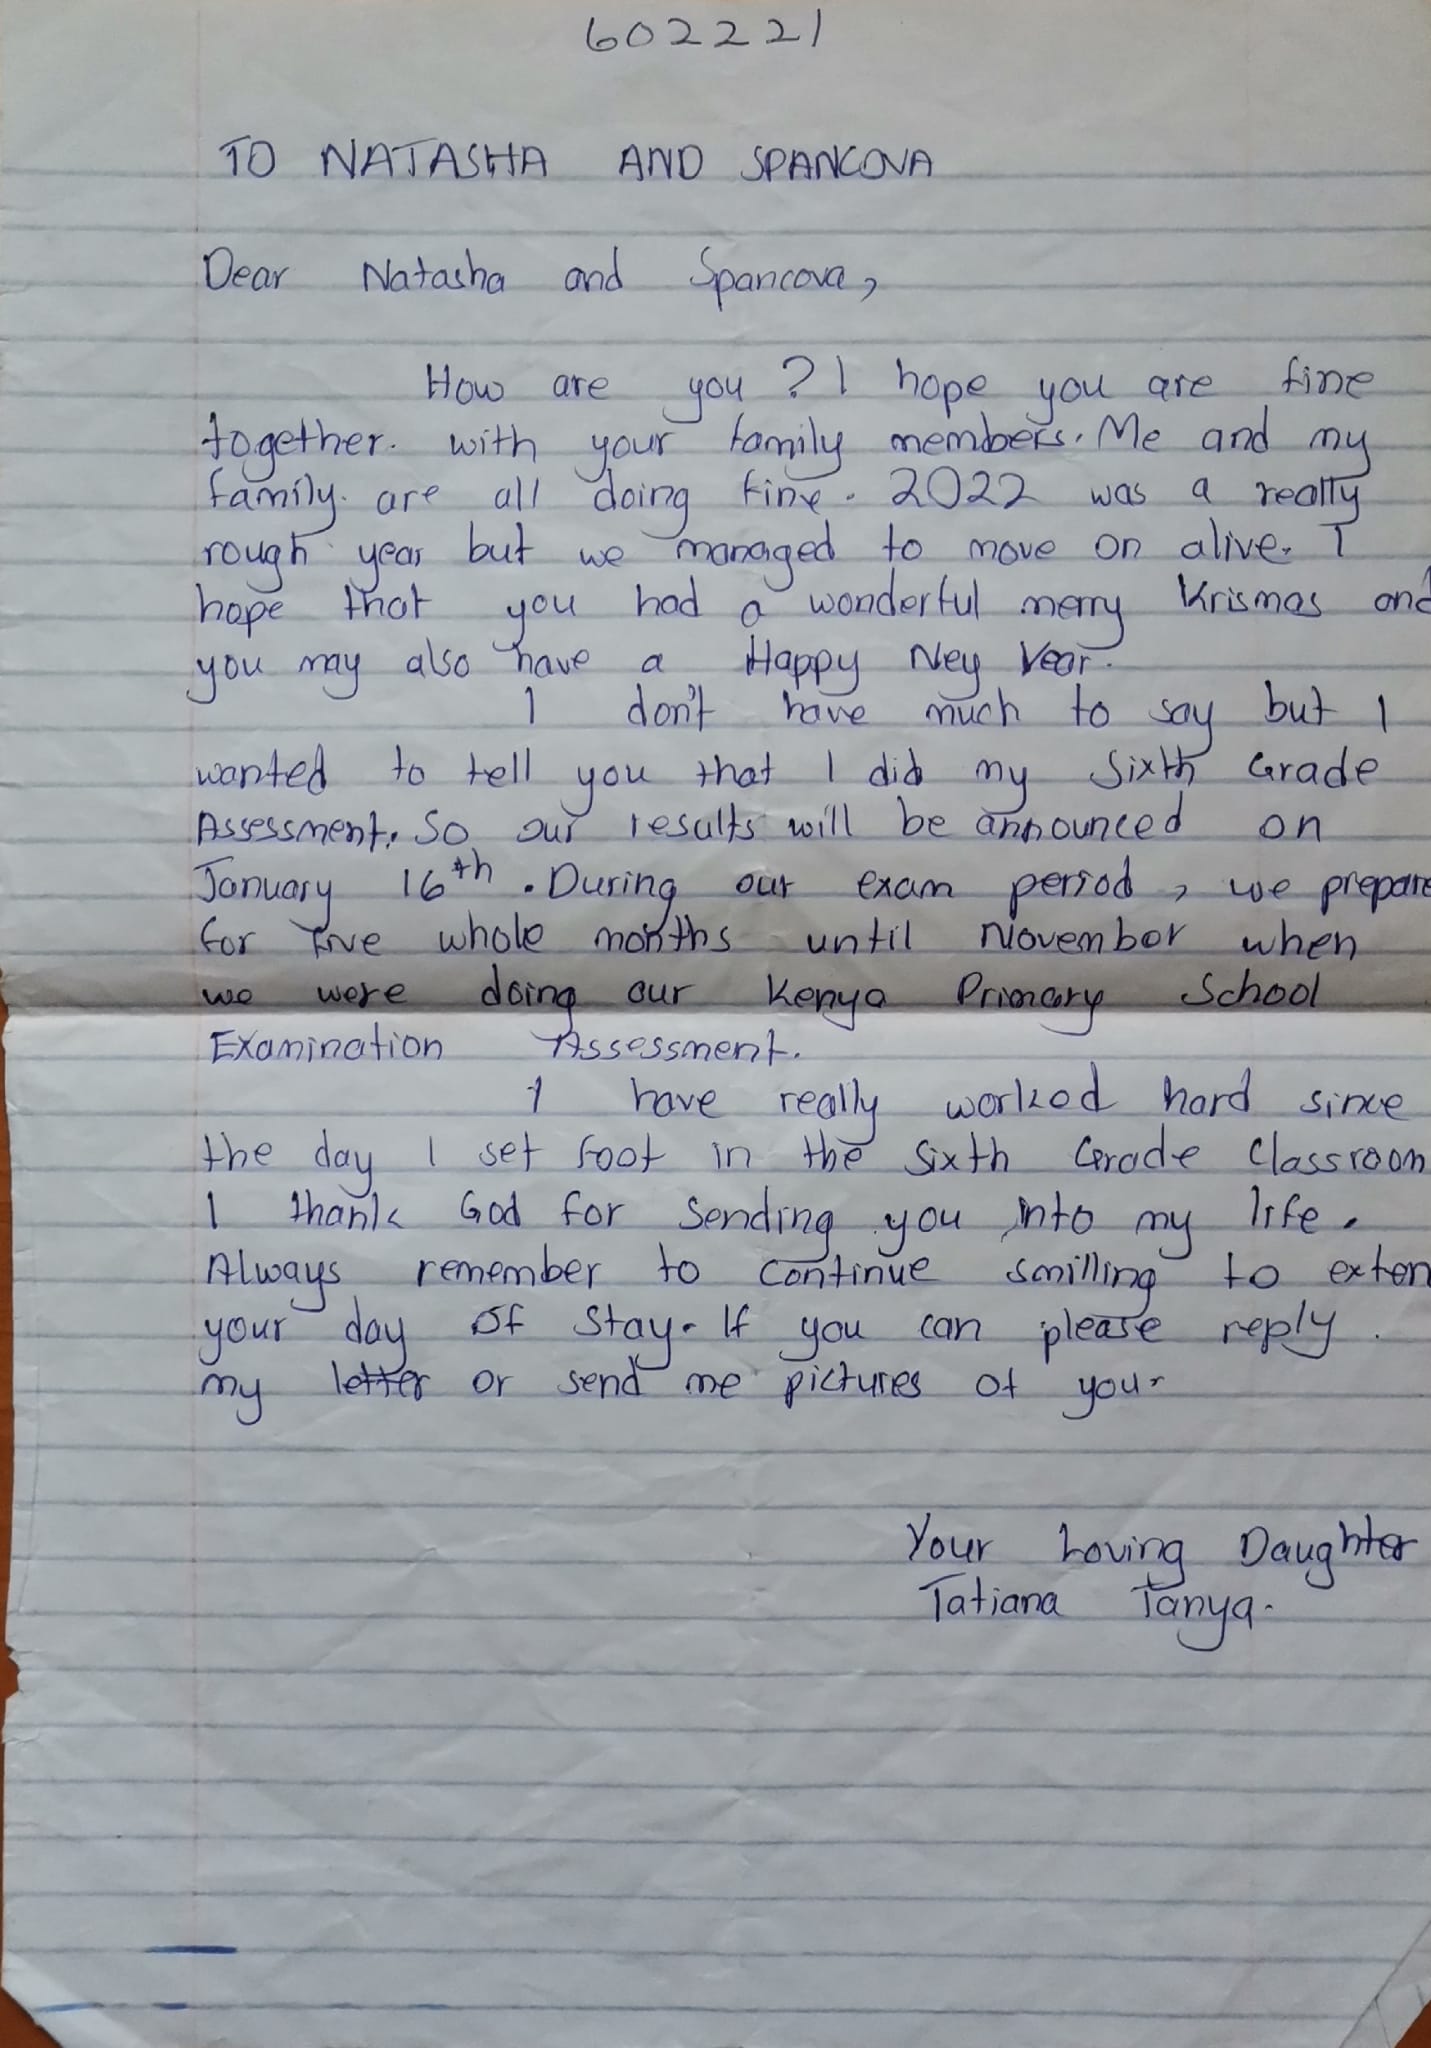 602221
TO NATASHA AND SPANCOVA
Dear Natasha and Spancova,
How are you ? I hope you are fine
together. with your family members. Me and my
family. are all doing fine. 2022 was a really
rough year but we managed to move on alive. I
hope that you had a wonderful merry Krismas and
you may also have a Happy Ney Year.
I don't have much to say but I
wanted to tell you that I did my Sixth Grade
Assessment. So our results will be announced on
January 16th. During our exam period, we prepare
for five whole months until November when
we were doing our Kenya Primary School
Examination Assessment.
I have really worked hard since
the day I set foot in the Sixth Grade Classroom
I thank God for sending you into my life.
Always remember to continue smilling to exten
your day of stay. If you can please reply.
my letter or send me pictures of you.
Your Loving Daughter
Tatiana Tanya.